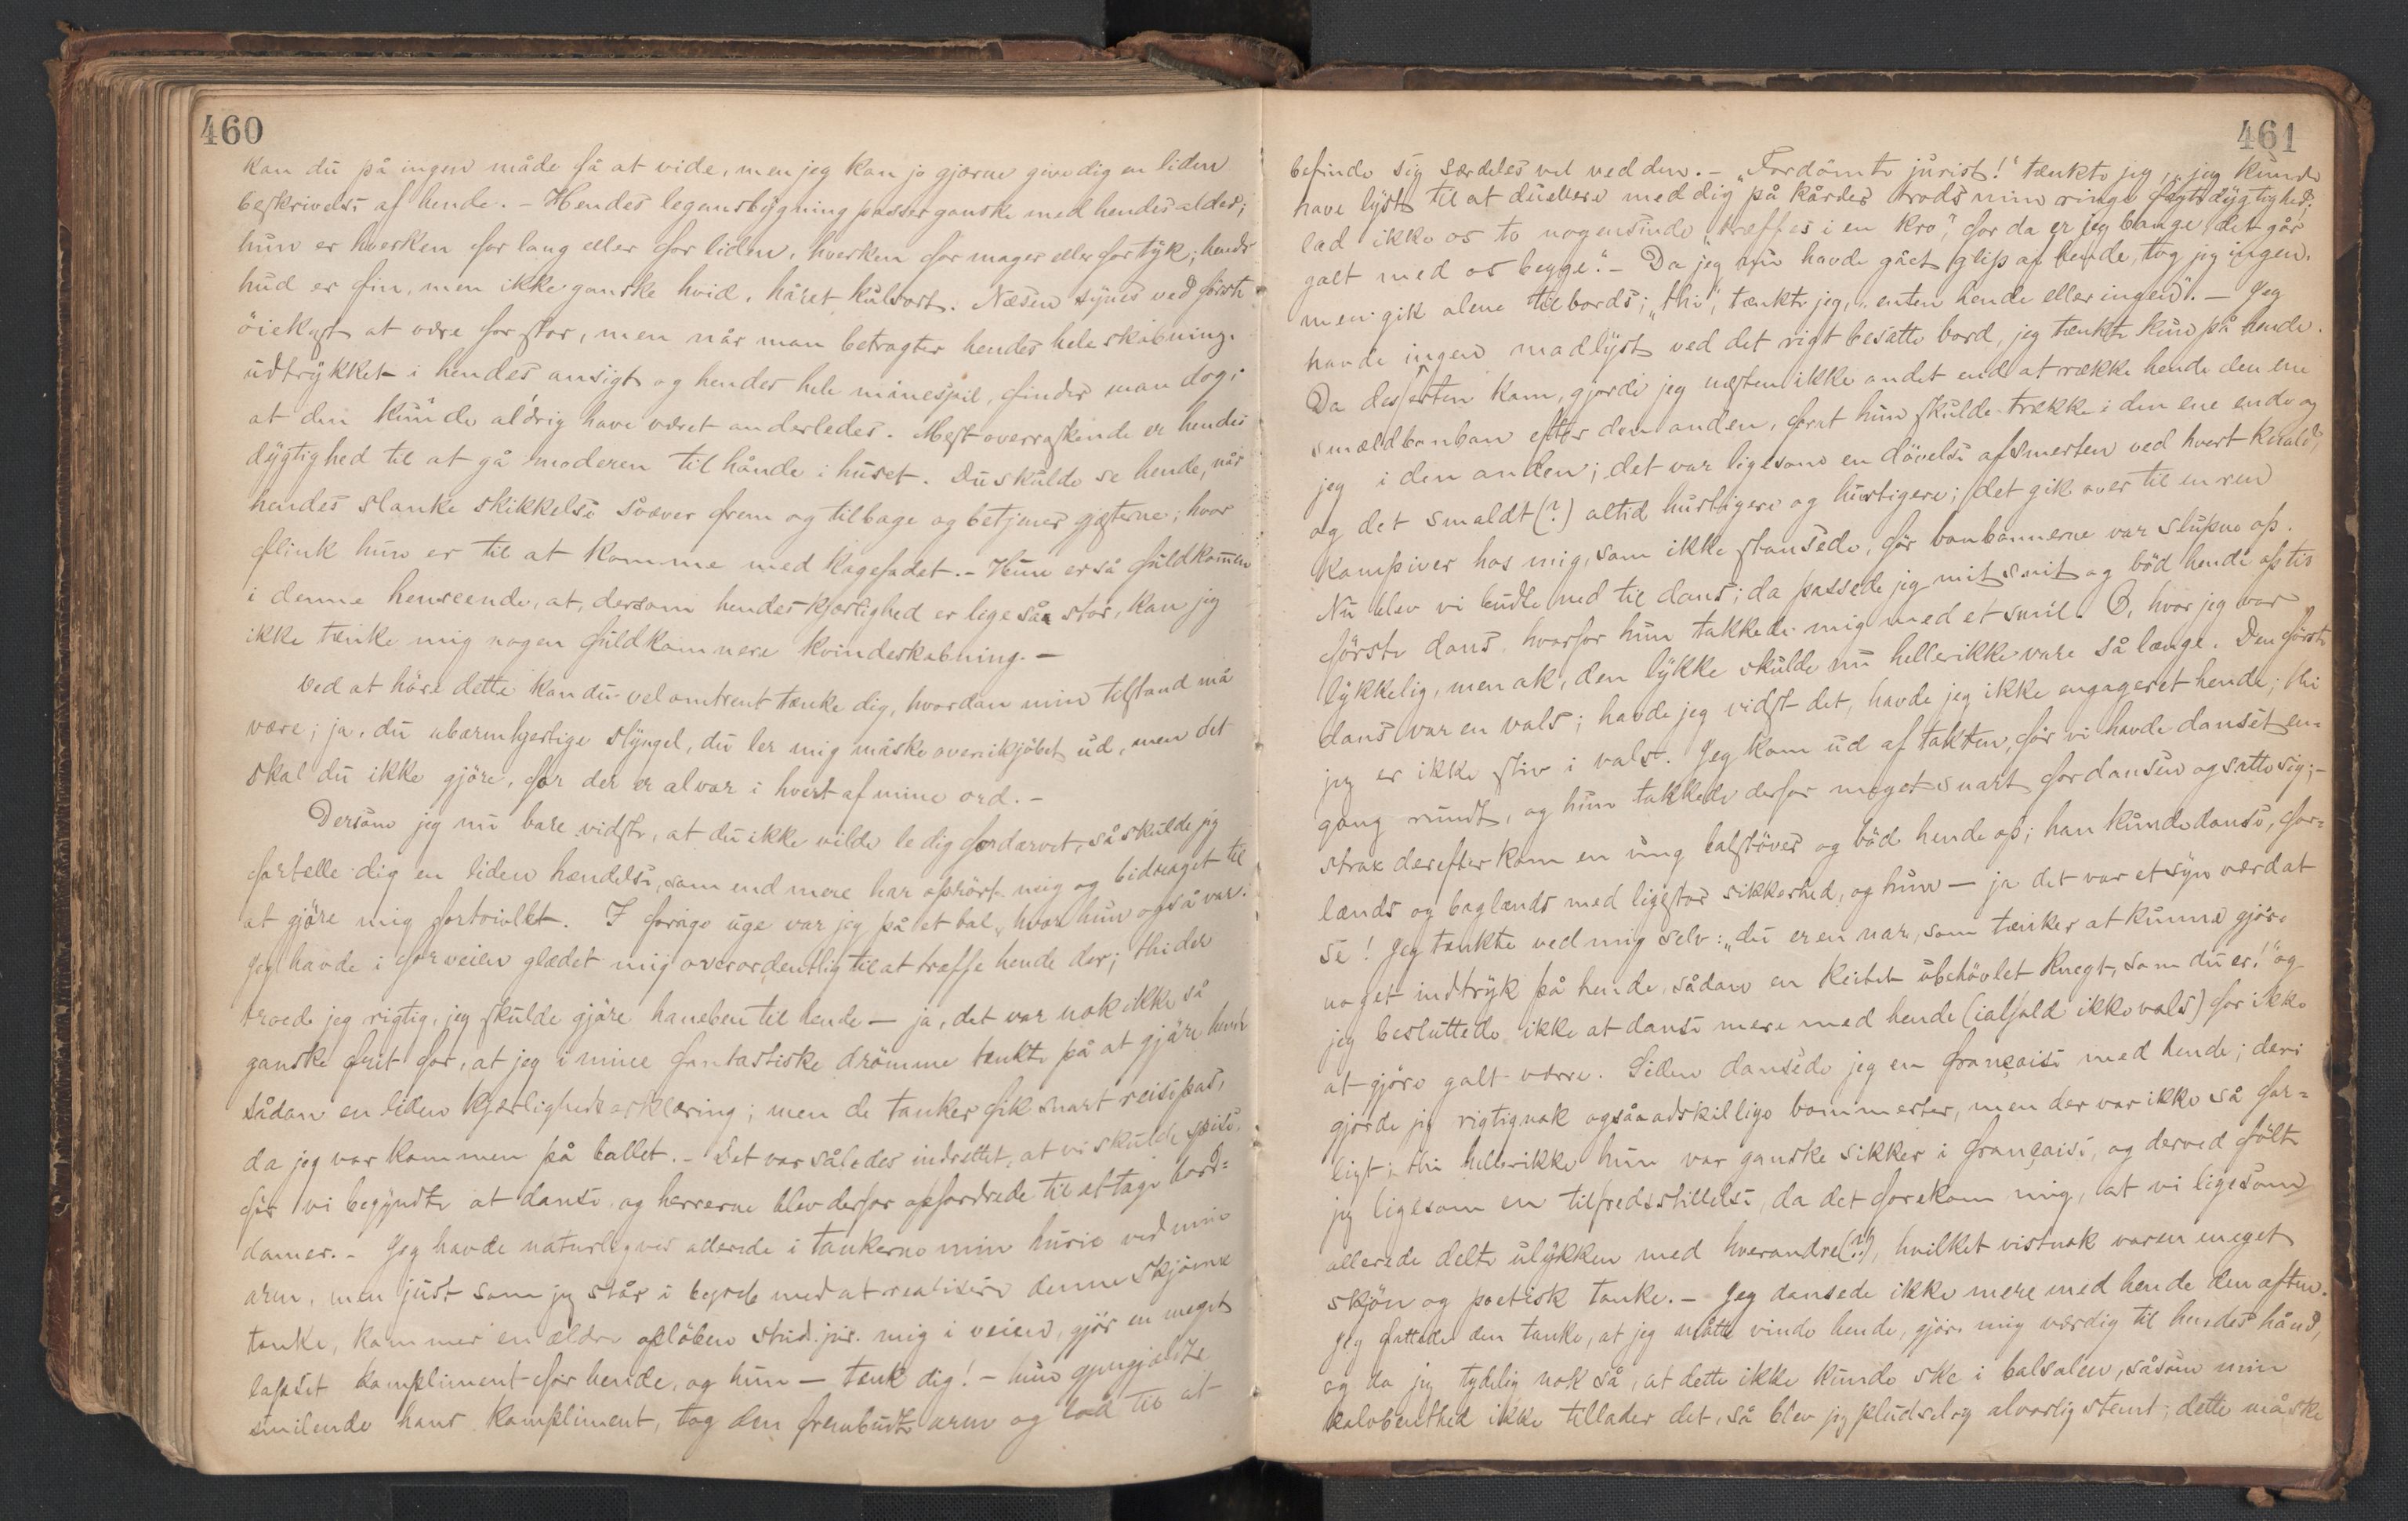 460
kan du på ingen måde få at vide, men jeg kan jo gjærne give dig en liden
beskrivelse af hende. – Hendes legemsbygning passer ganske med hendes alder;
hun er hverken for lang eller for liden, hverken for mager eller for tyk; hendes
hud er fin, men ikke ganske hvid, håret kulsort. Næsen synes ved første
öiekast at være for stor, men når man betragter hendes hele skabning,
udtrykket i hendes ansigt og hendes hele minespil, finder man dog,
at den kunde aldrig have været anderledes. Mest overraskende er hendes
dygtighed til at gå moderen til hånde i huset. Du skulde se hende, når
hendes slanke skikkelse svæver frem og tilbage og betjener gjæsterne; hvor
flink hun er til at komme med kagefadet. – Hun er så fuldkommen
i denne henseende, at, dersom hendes kjærlighed er lige så stor, kan jeg
ikke tænke mig nogen fuldkomnere kvindeskabning. –
Ved at höre dette kan du vel omtrent tænke dig, hvordan min tilstand må
være; ja, du ubarmhjertige slyngel, du ler mig måske ovenikjöbet ud, men det
skal du ikke gjöre, for der er alvor i hvert af mine ord. –
Dersom jeg nu bare vidste, at du ikke vilde le dig fordærvet, så skulde jeg
fortelle dig en liden hændelse, som end mere har oprört mig og bidraget til
at gjöre mig fortvivlet. I forige uge var jeg på et bal, hvor hun også var.
Jeg havde i forveien glædet mig overordentlig til at træffe hende der; thi der
troede jeg rigtig, jeg skulde gjöre haneben til hende – ja, det var nok ikke så
ganske frit for, at jeg i mine fantastiske drömme tænkte på at gjöre hende
sådan en liden kjærlighedserklæring; men de tanker fik snart reisepas,
da jeg var kommen på ballet. – Det var således indrettet, at vi skulde spise,
för vi begyndte at danse, og herrerne blev derfor opfordrede til at tage bord-
damer. – Jeg havde naturligvis allerede i tankerne min hurie ved min
arm, men just som jeg står i begreb med at realisere denne skjönne
tanke, kommer en ældre oplöben stud. jur. mig i veien, gjör en meget
lapset kompliment for hende, og hun – tænk dig! – hun gjengjældte
smilende hans kompliment, tog den frembudte arm og lod til at
461
befinde sig særdeles vel ved den. – „Fordömte jurist!" tænkte jeg, „jeg kunde
have lyst til at duellere med dig på kårder trods min ringe fægtedygtighed;
lad ikke os to nogensinde træffes i en kro", for da er jeg bange, det går
galt med os begge." – Da jeg nu havde gået glip af hende, tog jeg ingen,
men gik alene tilbords; „thi", tænkte jeg, „enten hende eller ingen". – Jeg
havde ingen madlyst ved det rigt besatte bord, jeg tænkte kun på hende.
Da desserten kom, gjorde jeg næsten ikke andet end at række hende den ene
smældbonbon efter den anden, forat hun skulde trække i den ene ende og
jeg i den anden; det var ligesom en dövelse af smerten ved hvert knald,
og det smaldt (?) altid hurtigere og hurtigere; det gik over til en ren
kampiver hos mig, som ikke stansede, för bonbonnerne var slupne op.
Nu blev vi budte ned til dans; da passede jeg mit snit og böd hende op til
förste dans, hvorfor hun takkede mig med et smil. O, hvor jeg var
lykkelig, men ak, den lykke skulde nu hellerikke vare så længe. Den förste
dans var en vals; havde jeg vidst det, havde jeg ikke engageret hende; thi
jeg er ikke stiv i vals. Jeg kom ud af takten, för vi havde danset en-
gang rundt, og hun takkede derfor meget snart for dansen og satte sig; –
strax derefter kom en ung balstöver og böd hende op; han kunde danse, for-
lænds og baglænds med ligestor sikkerhed, og hun – ja det var et syn værd at
se! Jeg tænkte ved mig selv: „du er en nar, som tænker at kunne gjöre
noget indtryk på hende, sådan en keitet ubehövlet knegt, som du er!" og
jeg besluttede ikke at danse mere med hende (ialfald ikke vals) for ikke
at gjöre galt værre. Siden dansede jeg en française med hende; deri
gjorde jeg rigtignok også adskillige bommerter, men der var ikke så far-
ligt; thi hellerikke hun var ganske sikker i française, og derved fölte
jeg ligesom en tilfredsstillelse, da det forekom mig, at vi ligesom
allerede delte ulykken med hverandre (?!), hvilket vistnok var en meget
skjön og poetisk tanke. – Jeg dansede ikke mere med hende den aften.
Jeg fattede den tanke, at jeg måtte vinde hende, gjöre mig værdig til hendes hånd,
og da jeg tydelig nok så, at dette ikke kunde ske i balsalen, såsom min
kalvbenthed ikke tillader det, så blev jeg pludselig alvorlig stemt; dette måske